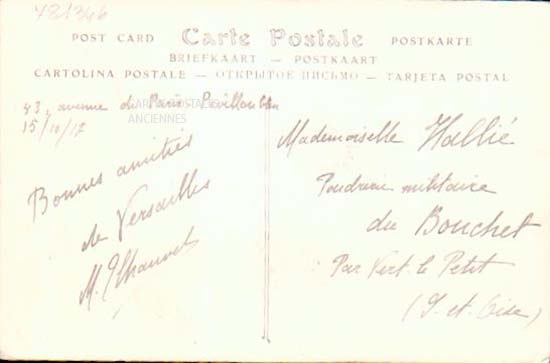 781346
POST CARD Carte Postale POSTKARTE
BRIEFKAART — POSTKAART
CARTOLINA POSTALE — ОТКРЫТОЕ ПИСЬМО — TARJETA POSTAL
43, avenue de Paris
15/10/17
CARTES POSTALES
ANCIENNES
Bonnes amitiés
de Versailles
M.
Mademoiselle Hallié
Poudrerie militaire
du Bouchet
Par Vert le Petit
(S. et. Oise)